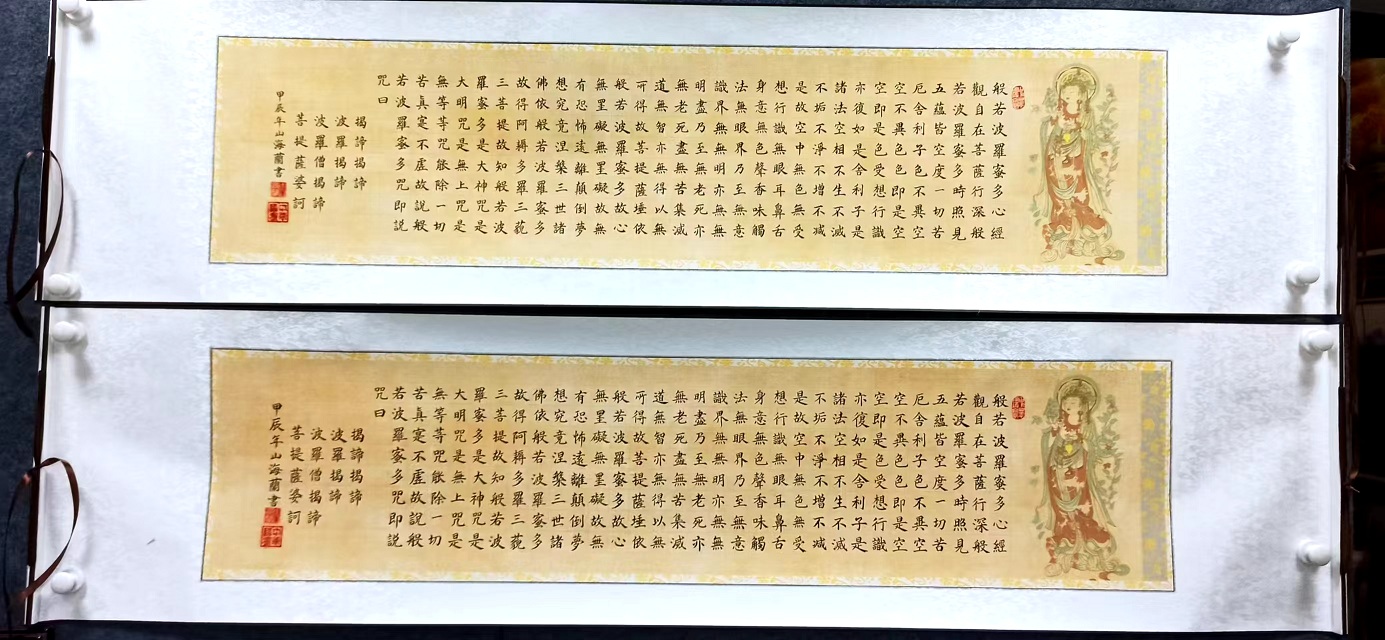 般若波羅蜜多心經
觀自在菩薩行深般
若波羅蜜多時照見
五蘊皆空度一切苦
厄舍利子色不異空
空不異色色即是空
空即是色受想行識
亦復如是舍利子是
諸法空相不生不滅
不垢不淨不增不減
是故空中無色無受
想行識無眼耳鼻舌
身意無色聲香味觸
法無眼界乃至無意
識界無無明亦無無
明盡乃至無老死亦
無老死盡無苦集滅
道無智亦無得以無
可得故菩提薩埵依
般若波羅蜜多故心
無罣礙無罣礙故無
有恐怖遠離顛倒夢
想究竟涅槃三世諸
佛依般若波羅蜜多
故得阿耨多羅三藐
三菩提故知般若波
羅蜜多是大神咒是
大明咒是無上咒是
無等等咒能除一切
苦真實不虛故說般
若波羅蜜多咒即説
咒曰
揭諦揭諦
波羅揭諦
波羅僧揭諦
菩提薩婆訶
甲辰年山海蘭書
般若波羅蜜多心經
觀自在菩薩行深般
若波羅蜜多時照見
五蘊皆空度一切苦
厄舍利子色不異空
空不異色色即是空
空即是色受想行識
亦復如是舍利子是
諸法空相不生不滅
不垢不淨不增不減
是故空中無色無受
想行識無眼耳鼻舌
身意無色聲香味觸
法無眼界乃至無意
識界無無明亦無無
明盡乃至無老死亦
無老死盡無苦集滅
道無智亦無得以無
可得故菩提薩埵依
般若波羅蜜多故心
無罣礙無罣礙故無
有恐怖遠離顛倒夢
想究竟涅槃三世諸
佛依般若波羅蜜多
故得阿耨多羅三藐
三菩提故知般若波
羅蜜多是大神咒是
大明咒是無上咒是
無等等咒能除一切
苦真實不虛故說般
若波羅蜜多咒即説
咒曰
揭諦揭諦
波羅揭諦
波羅僧揭諦
菩提薩婆訶
甲辰年山海蘭書